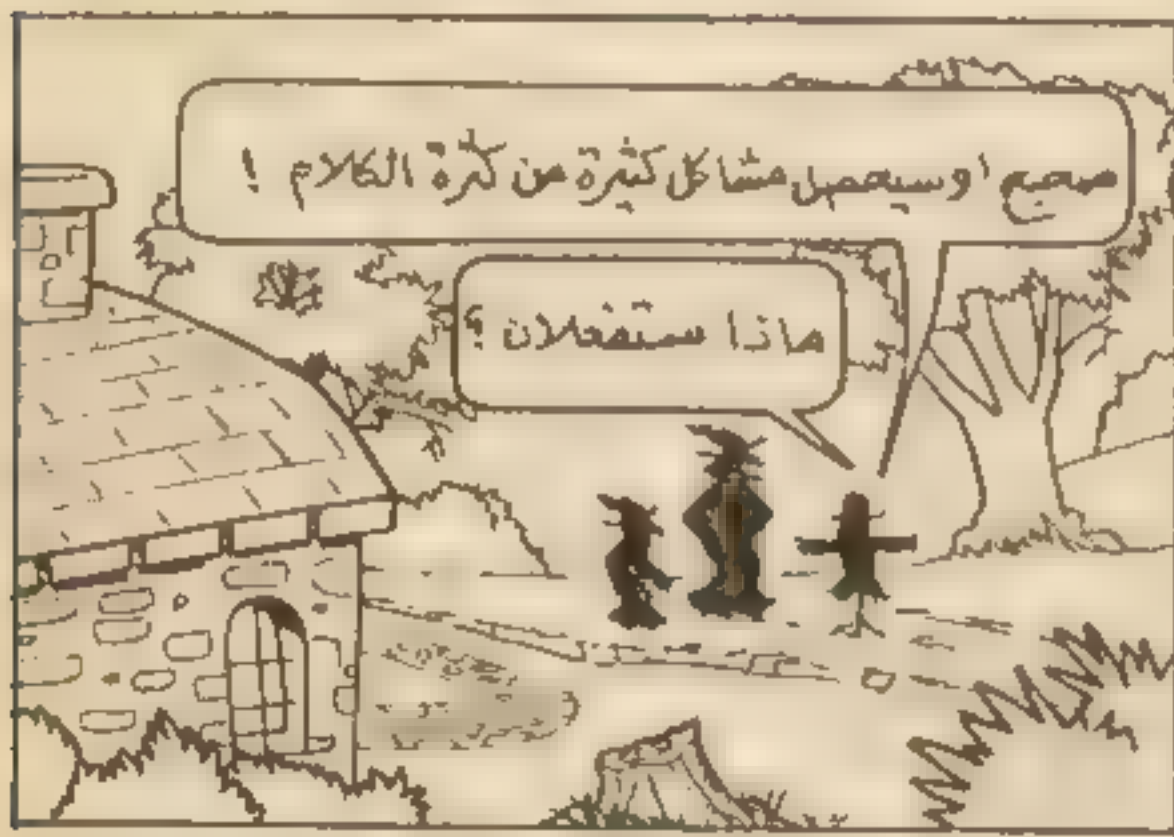 صحيح ! وسيحصل مشاكل كثيرة من كثرة الكلام !
ماذا ستفعلان ؟